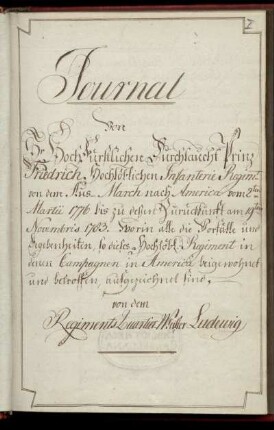 2
Journal
Von
Sr Hoch Fürstlichen Durchlaucht Prinz
Fridrich, Hochlöblichen Infanterie Regimt
von dem Aus-March nach America vom
Martii 1776 bis zu deßen Zurückkunft am
Novembris 1783. Worin alle die Vorfälle und
Begebenheiten, so dießes Hochlöbl. Regiment in
denen Campagnen in America beigewohnet
und betroffen, aufgezeichnet sind.
von dem
Regiments Quartier Meister Ludewig